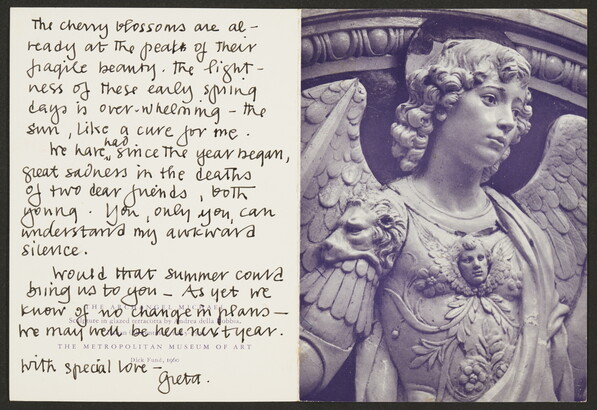 The cherry blossoms are al-
ready at the peak of their
fragile beauty. The light-
ness of these early spring
days is over-whelming – the
sun, like a cure for me.
We have had, since the year began,
great sadness in the deaths
of two dear friends, both
young. You, only you, can
understand my awkward
silence.
Would that summer could
bring us to you – As yet we
THE ARCHANGEL MICHAEL
know of no change in plans –
Sculpture in glazed terracotta by Andrea della Robbia,
we may well be here next year.
THE METROPOLITAN MUSEUM OF ART
Dick Fund, 1960
With special love –
Greta.